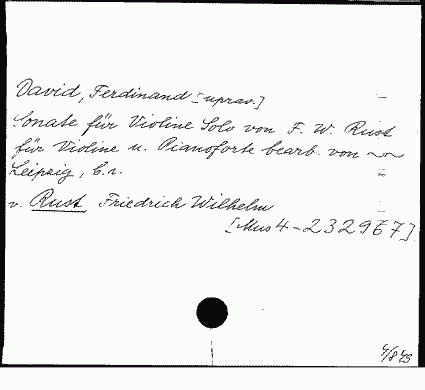 David, Ferdinand [uprav.]
Sonate für Violine Solo von F. W. Rust
für Violine u. Pianoforte bearb. von ~
Leipzig, b.r.
v. Rust Friedrich Wilhelm
[Mus4-232967]
4/849